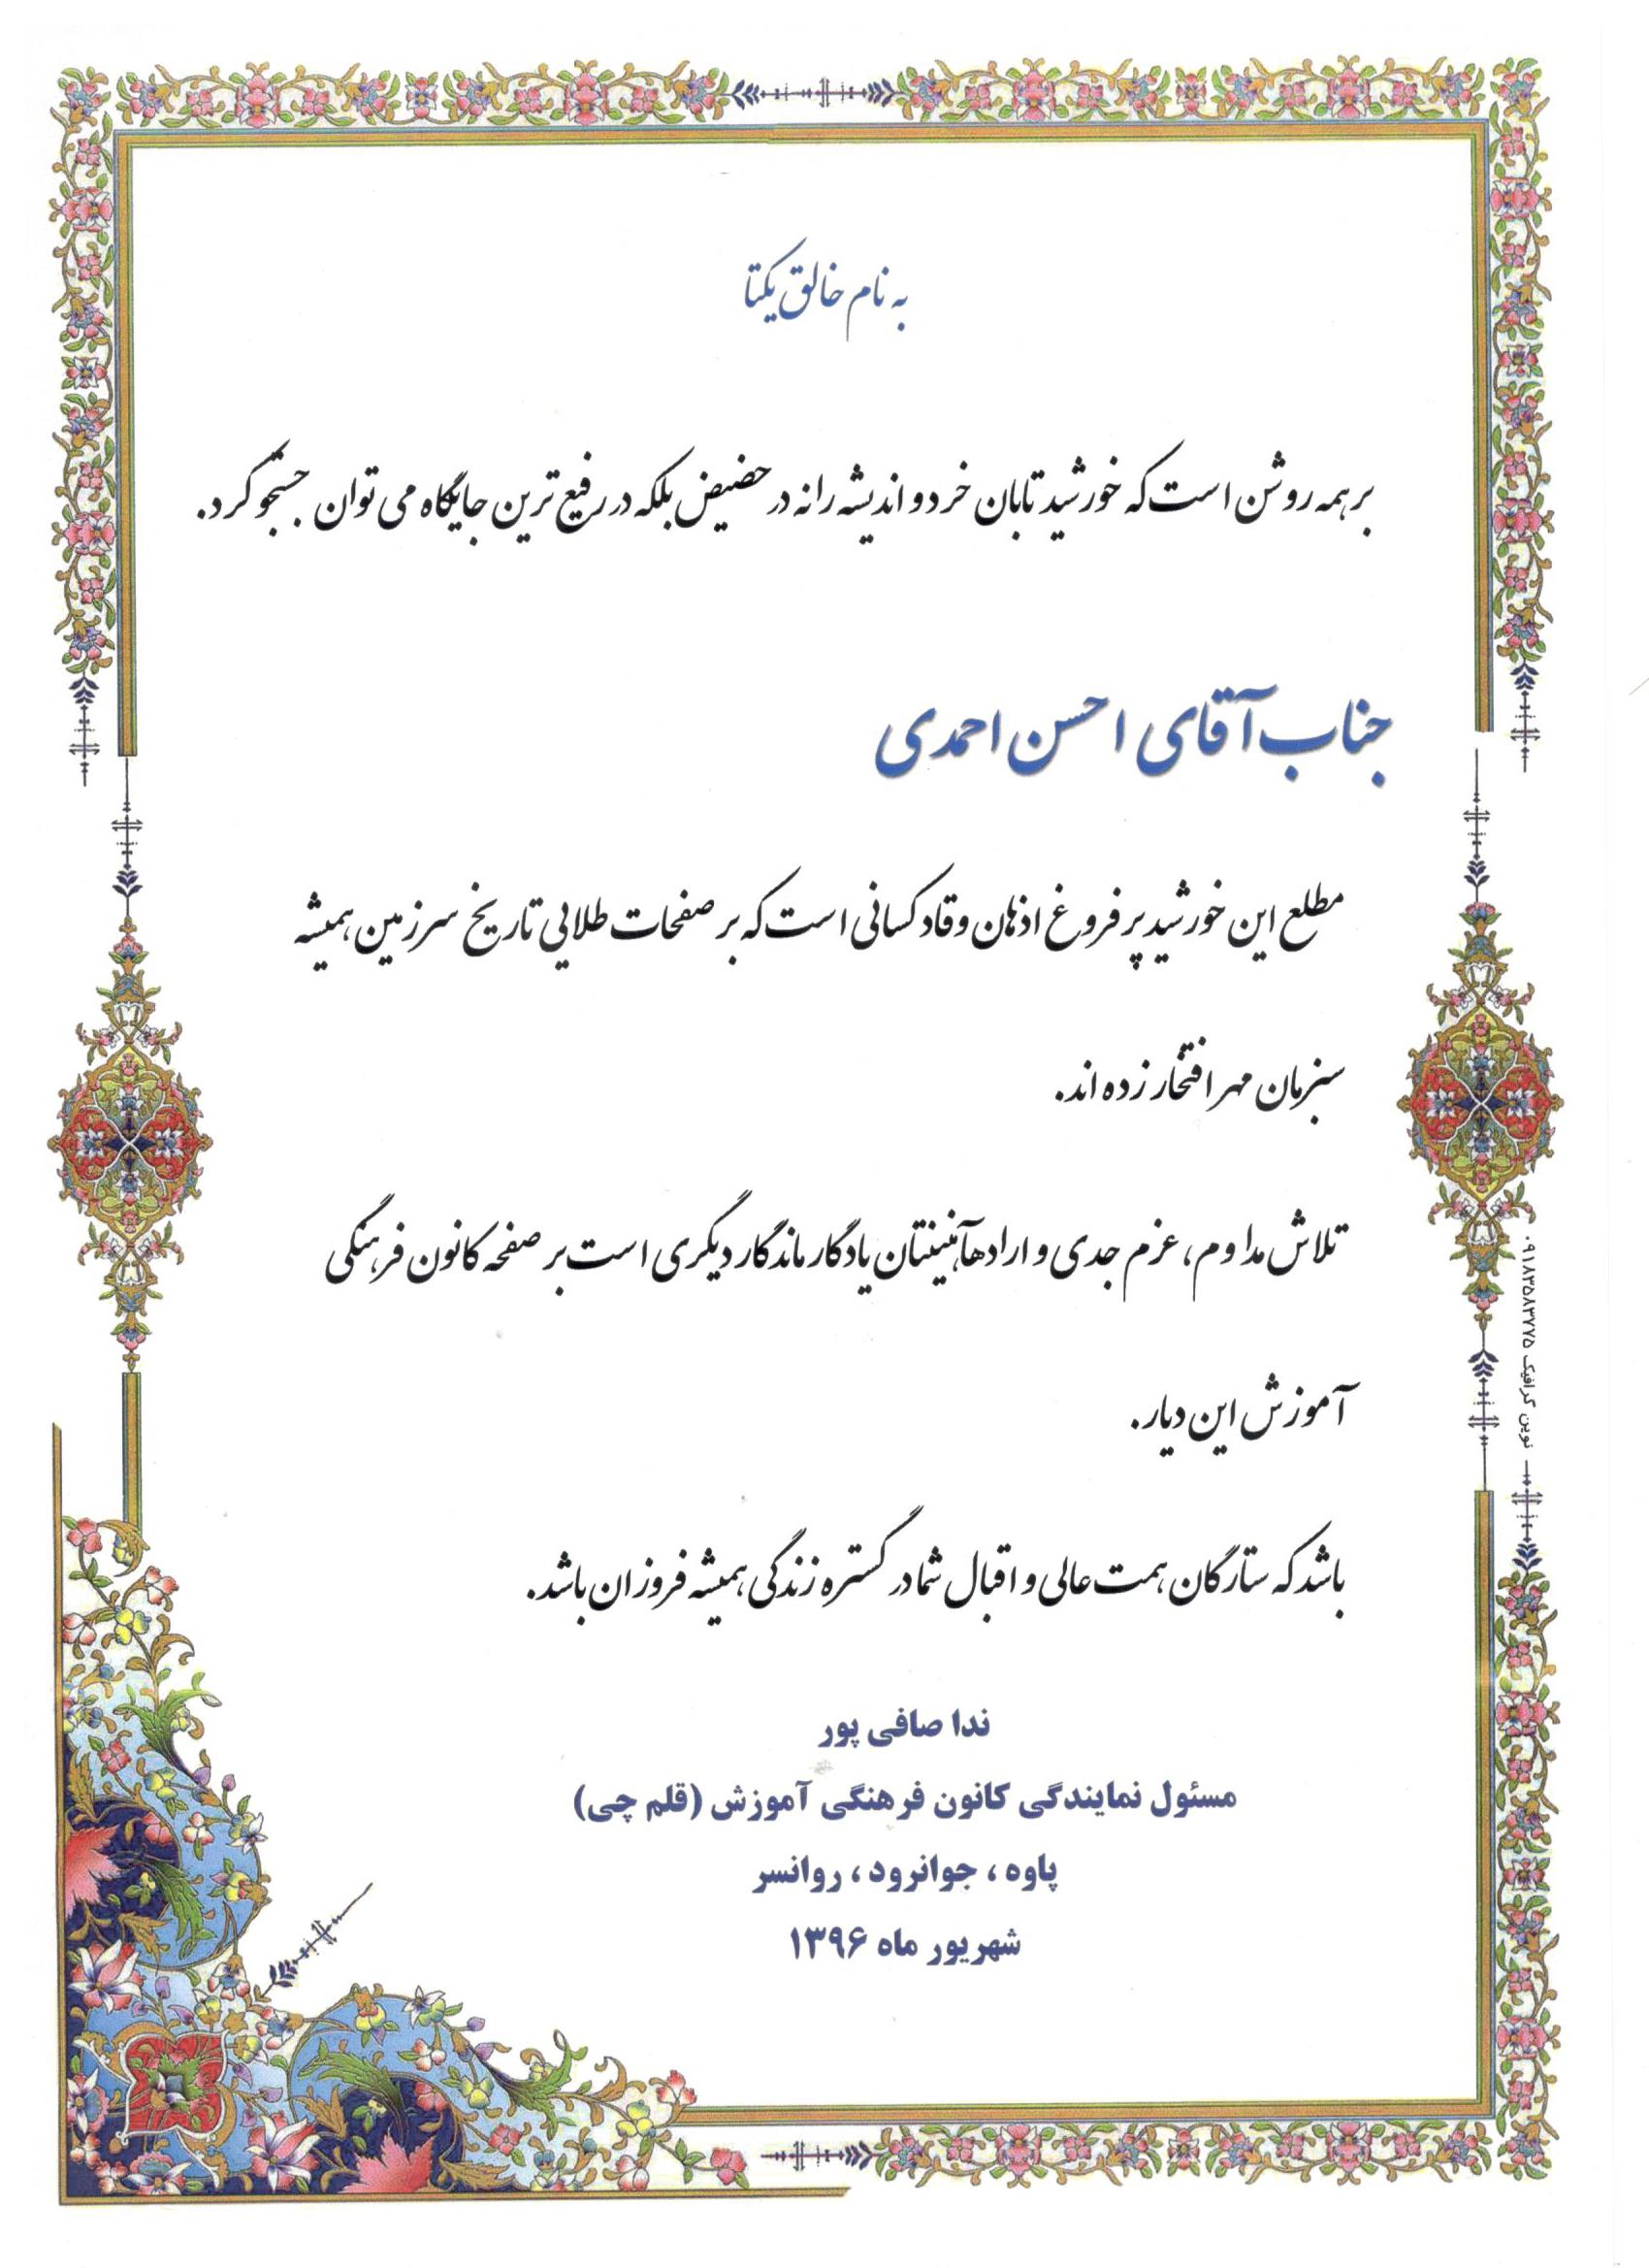 به نام خالق یکتا
بر همه روشن است که خورشید تابان خرد و اندیشه را نه در حضیض بلکه در رفیع ترین جایگاه می توان جستجو کرد.
جناب آقای احسن احمدی
مطلع این خورشید پر فروغ اذهان وقاد کسانی است که بر صفحات طلایی تاریخ سرزمین همیشه
سبزمان مهر افتخار زده اند.
تلاش مداوم، عزم جدی و ارادهآهنینتان یادگار ماندگار دیگری است بر صفحه کانون فرهنگی
آموزش این دیار.
باشد که ستارگان همت عالی و اقبال شما در گستره زندگی همیشه فروزان باشد.
ندا صافی پور
مسئول نمایندگی کانون فرهنگی آموزش (قلم چی)
پاوه ، جوانرود ، روانسر
شهریور ماه ۱۳۹۶
نوین گرافیک ۰۹۱۸۳۵۸۳۷۷۵